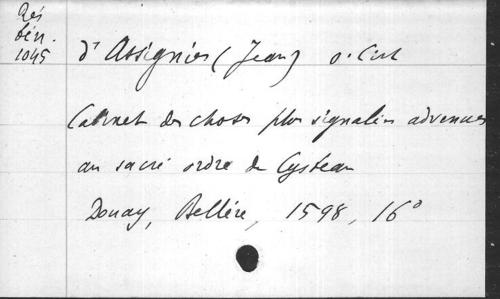 Rés
bén.
1045
d'Assignies (Jean) o. Cist
Cabinet des choses plus signalées advenues
au sacré ordre de Cysteau
Douay, Bellère, 1598, 16°